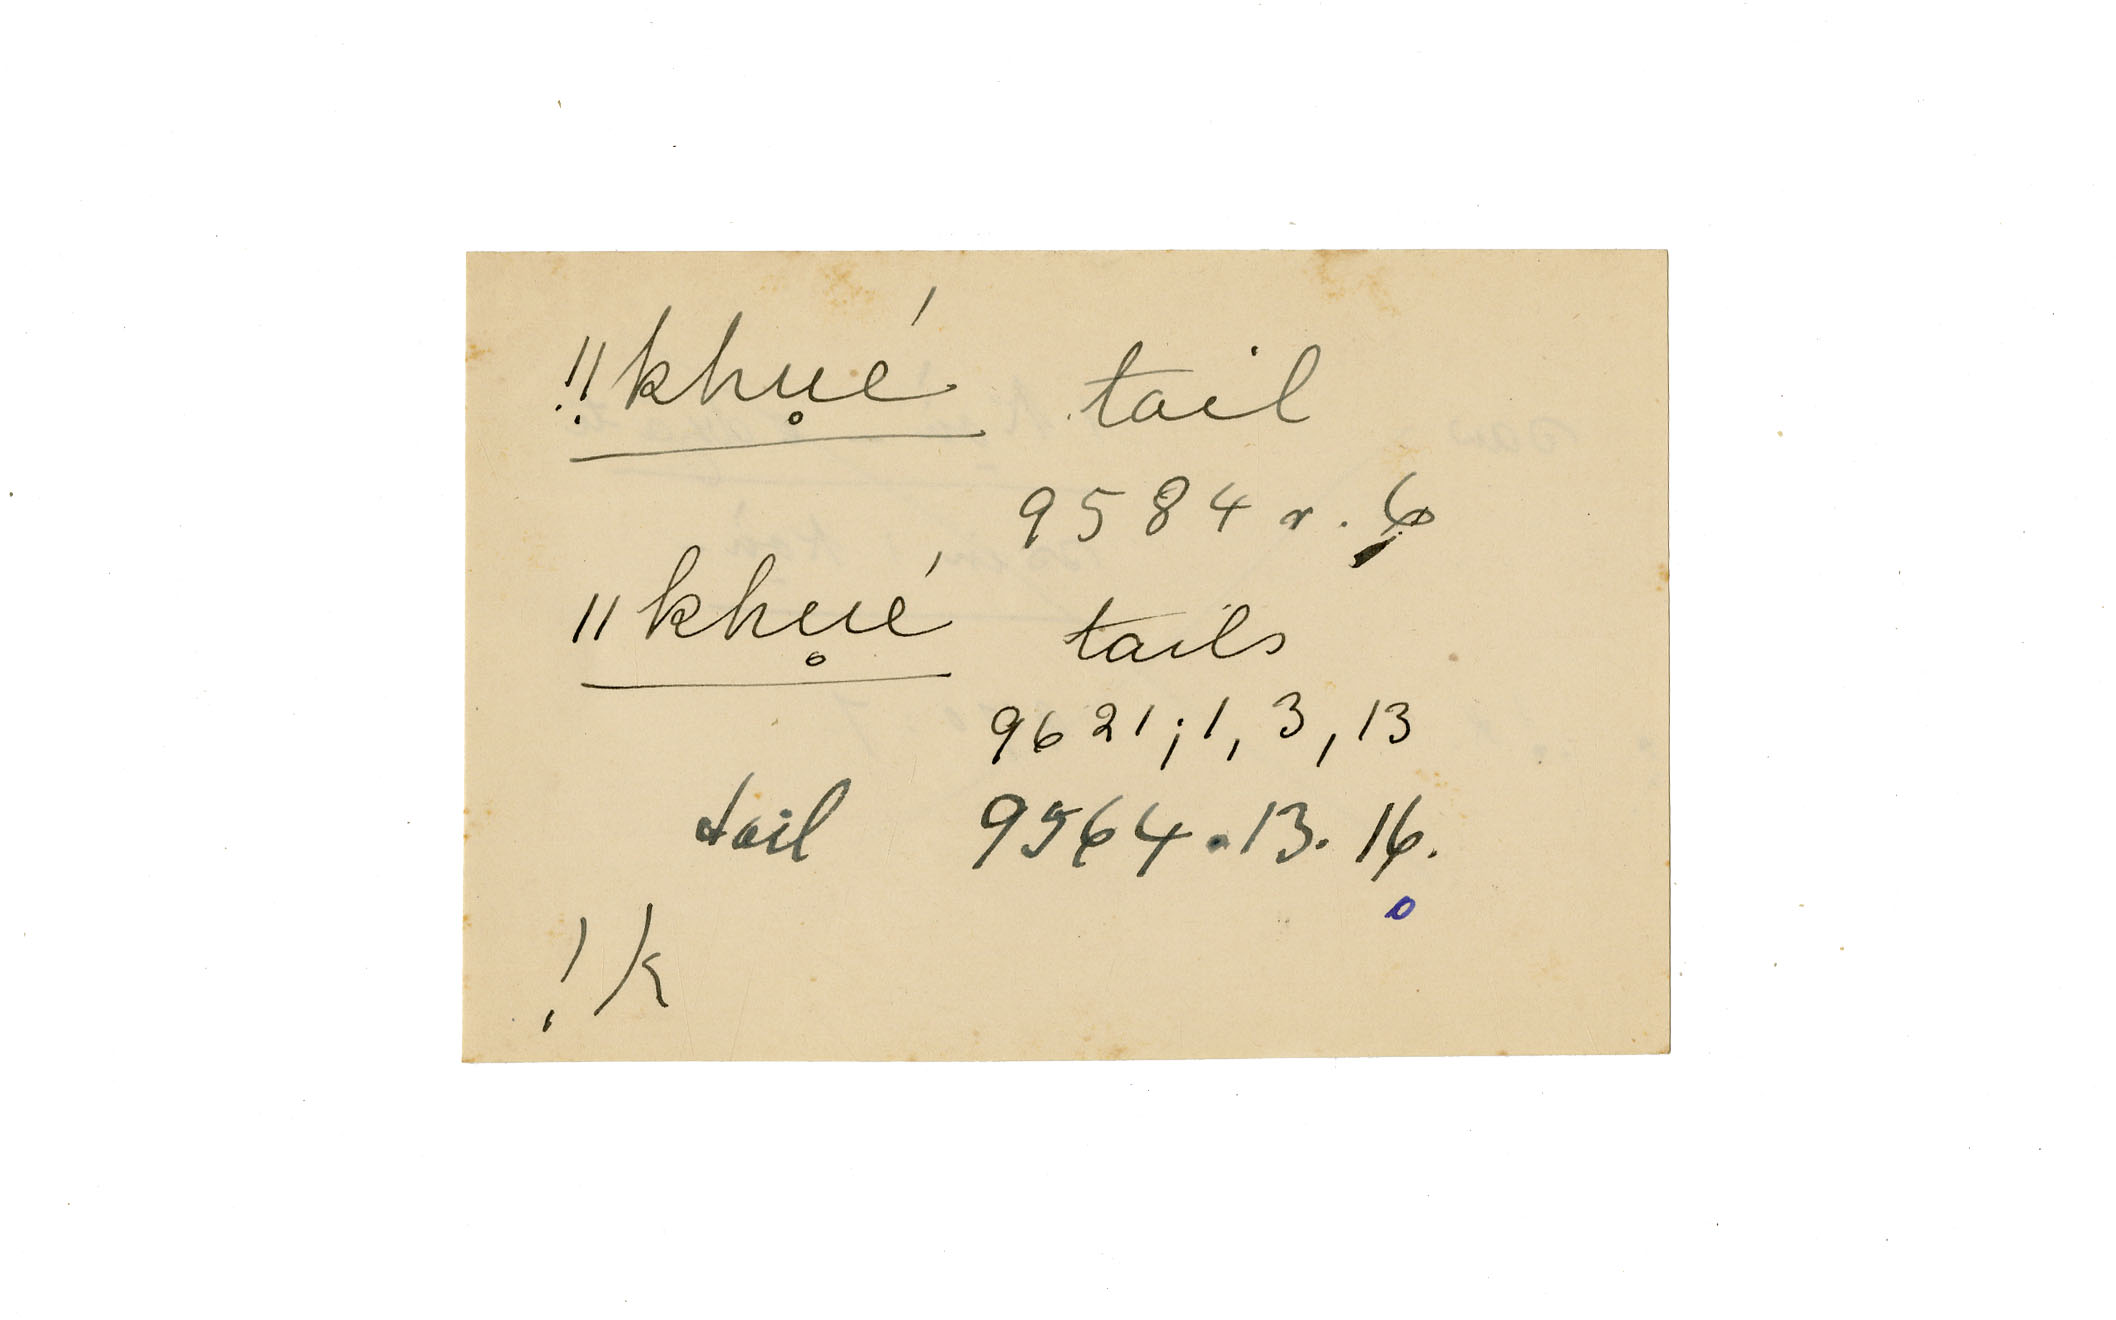 !!khu̥é tail
9584 r. 6
ǁkhu̥é tails
9621; 1, 3, 13
tail 9564.13.16.
!k